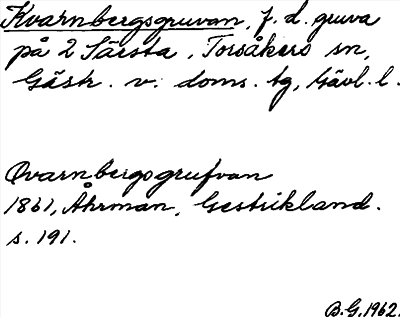 Kvarnbergsgruvan, f. d. gruva
på 2 Särsta, Torsåkers sn,
Gästr. v. doms. tg, Gävl. l.
Qvarnbergsgrufvan
1861, Åhrman, Gestrikland.
s. 191.
B.G. 1962.